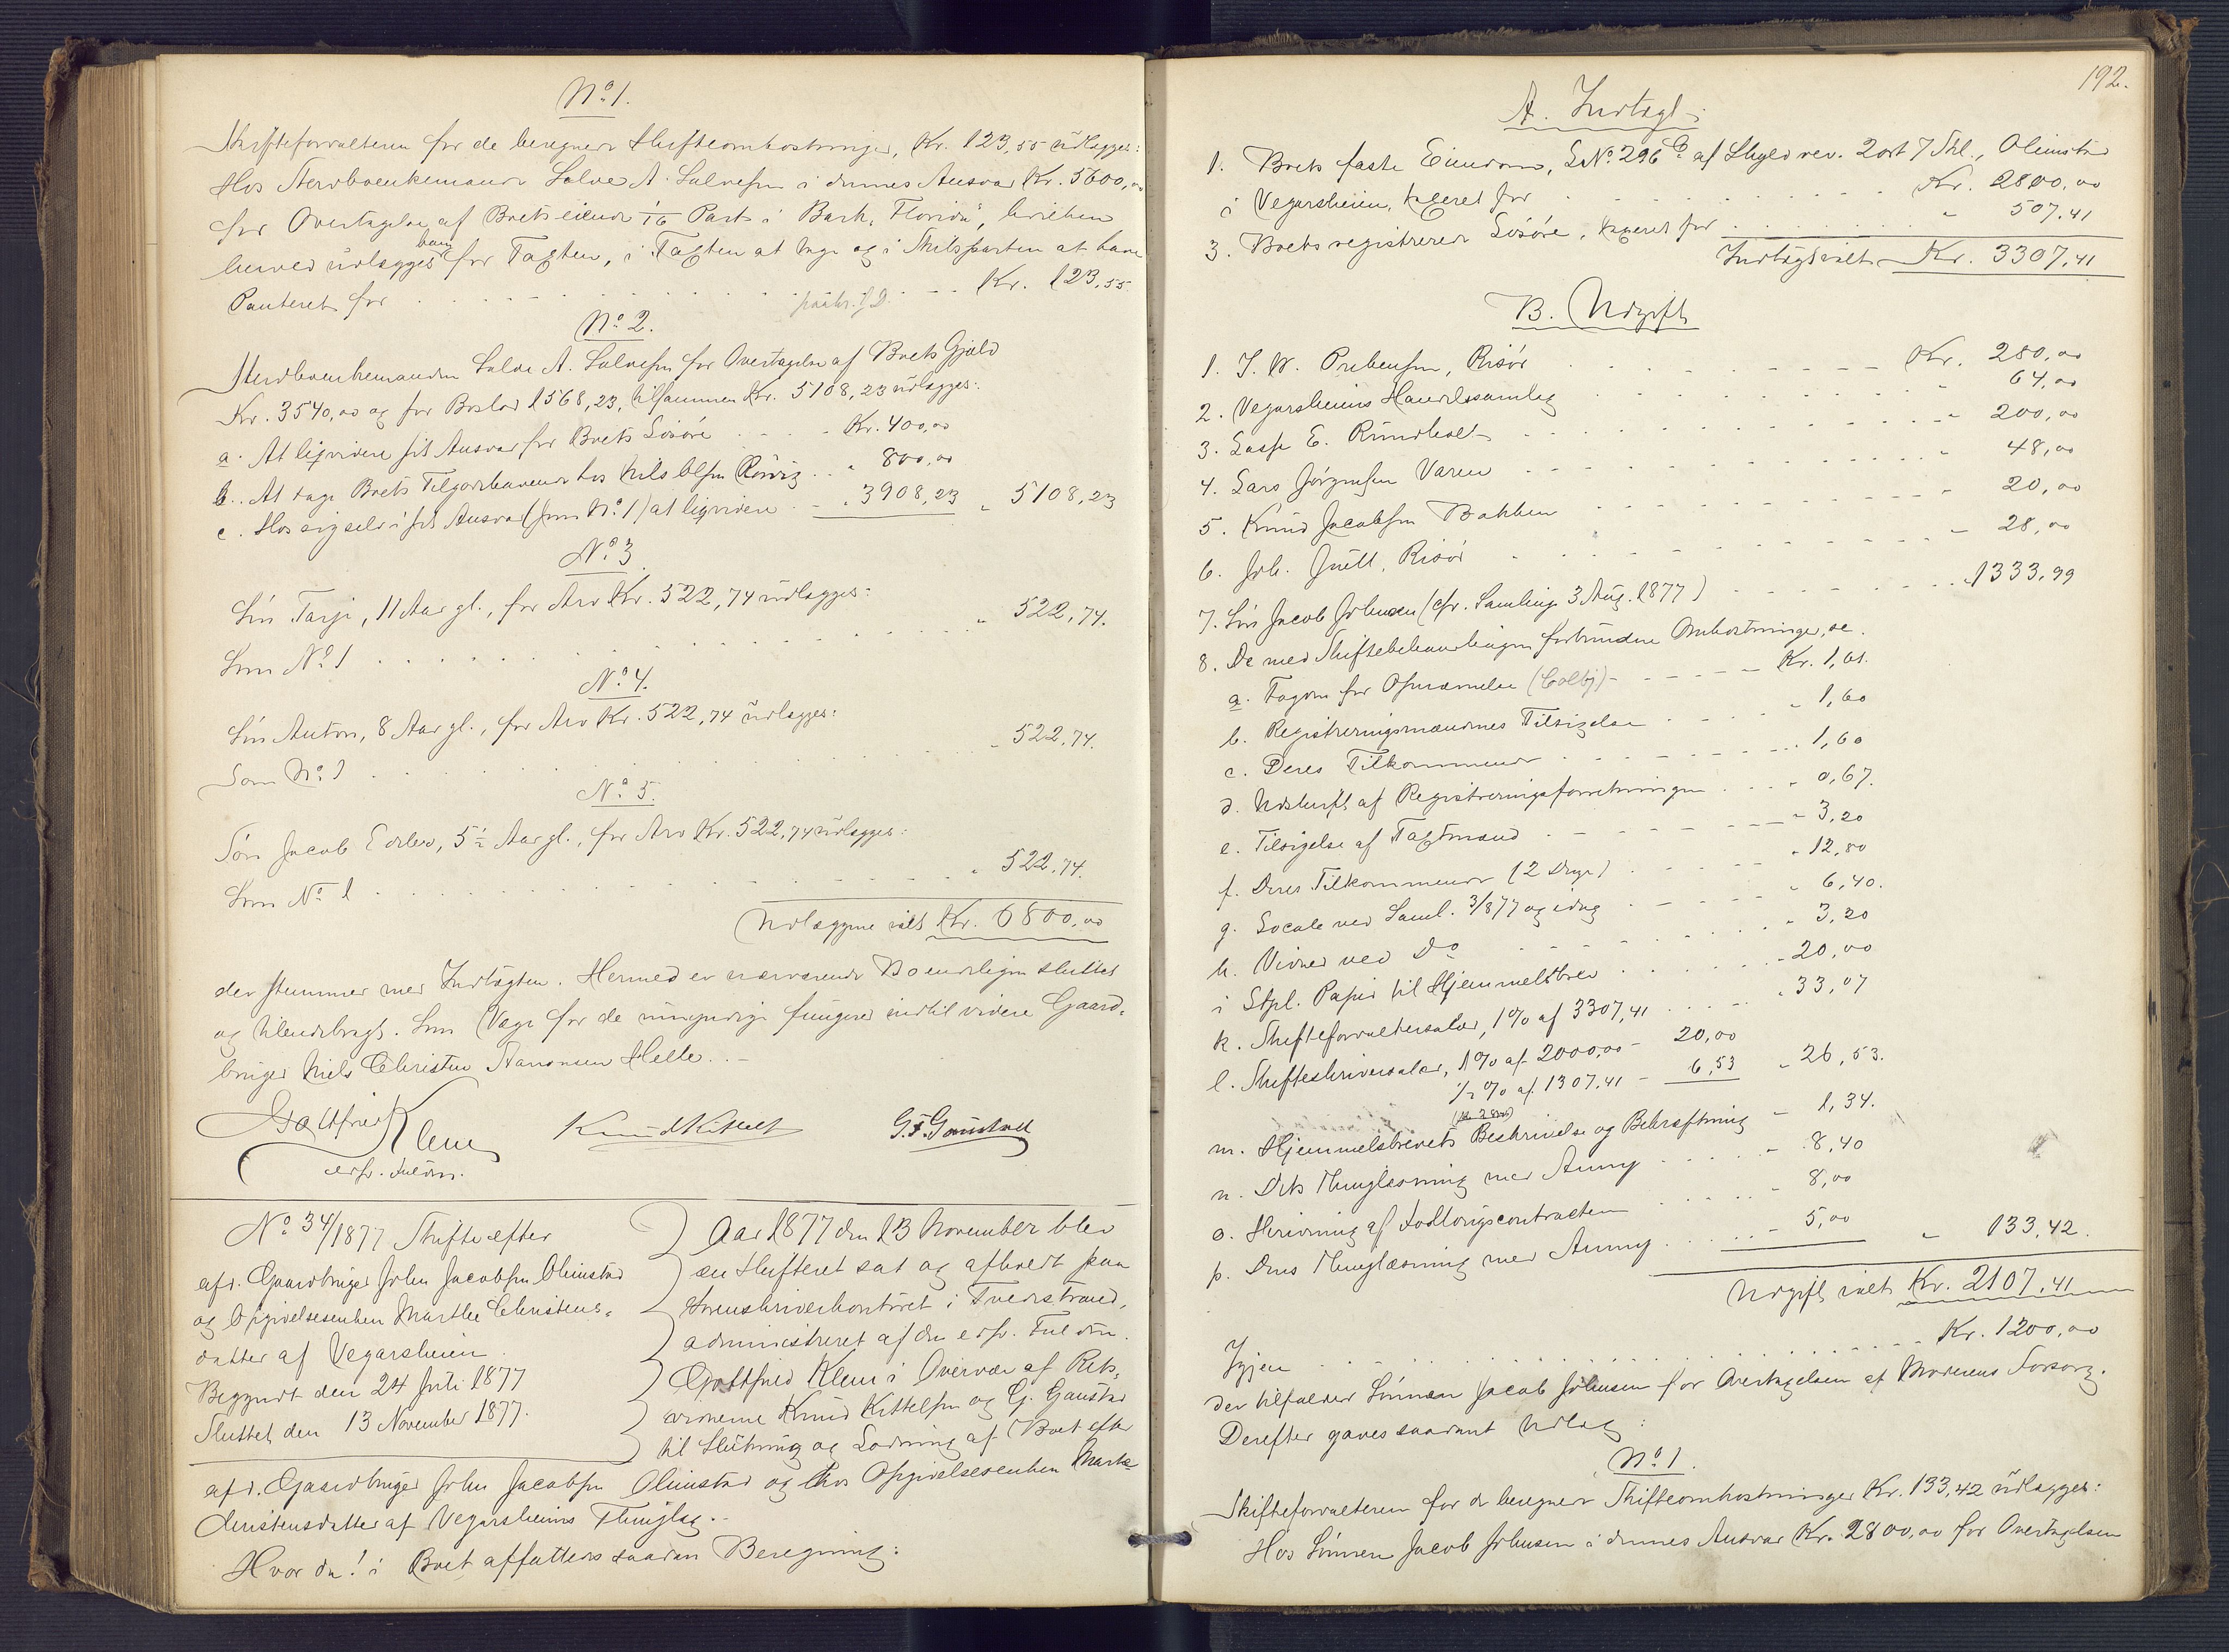 No. 1.
Skifteforvalteren for de beregnede Skifteomkostninger, Kr. 123,55 udlægges:
Hos Stervboenkemanden Salve A. Salvesen i dennes Ansvar Kr. 5600,00
for Overtagelse af Boets eiende 1/16 Part i Bark "Florida",
herved udlægges ham for Taxten, i Taxten at tage og i Skibsparten at have
Panteret for . . . Kr. 123,55.
No. 2.
Stervboenkemanden Salve A. Salvesen for Overtagelse af Boets Gjæld
Kr. 3540,00 og for Boslod 1568,23, tilsammen Kr. 5108,23 udlægges:
a. At liqvidere sit Ansvar for Boets Løsøre . . . Kr. 400,00
b. At tage Boets Tilgodehavende hos Nils Olsen . . " 800,00
c. Hos sig selv i sit Ansvar (som No. 1) at liqvidere . . " 3908,23 " 5108,23
No. 3.
Søn Tarje, 11 Aar gl., for Arv Kr. 522,74 udlægges:
Som No. 1 . . . " 522,74.
No. 4.
Søn Anton, 8 Aar gl., for Arv Kr. 522,74 udlægges:
Som No. 1 . . . " 522,74.
No. 5.
Søn Jacob Edlev, 5½ Aar gl., for Arv Kr. 522,74 udlægges:
Som No. 1 . . . " 522,74.
Udlæggene ialt Kr. 6800,00
der stemmer med Indtægten. Hermed er nærværende Bo endeligen sluttet
og tilendebragt. Som Værge for de umyndige fungerer indtil videre Gaard-
bruger Niels Christen Aanonsen Helle. –
Gottfried Klem
edsv. Fuldm.
Knud Kittels
G. F. Gaustad
No. 34/1877 Skifte efter
afd. Gaardbruger John Jacobsen Olimstad
og Opgivelsesenken Marthe Christens-
datter af Vegarsheien.
Begyndt den 24 Juli 1877
Sluttet den 13 November 1877.
Aar 1877 den 13 November blev
en Skifteret sat og afholdt paa
Sorenskriverkontoret i Tvedestrand,
administreret af den edsv. Fuldm.
Gottfried Klem i Overvær af Rets-
vidnerne Knud Kittelsen og G. Gaustad
til Slutning og Lodning af Boet efter
afd. Gaardbruger John Jacobsen Olimstad og hos Opgivelsesenken Marte
Christensdatter af Vegarsheiens Thinglag. –
Hvorda! i Boet affattedes saadan Beregning:
192.
A. Indtægt:
1. Boets faste Eiendom, LNo. 296 b af Skyld rev. 2 ort 7 Skl., Olimstad
i Vegarsheien, taxeret for . . . Kr. 2800,00
3. Boets registrerede Løsøre, taxeret for . . . " 507,41
Indtægt ialt Kr. 3307,41
B. Udgift
1. J. W. Prebensen, Risør . . . Kr. 280,00
2. Vegarsheiens Handelssamlag . . . " 64,00
3. E. Rundholt . . . " 200,00
4. Lars Jørgensen Varen . . . " 48,00
5. Knud Jacobsen Bakken . . . " 20,00
6. Joh. Juell, Risør . . . " 28,00
7. Søn Jacob Johnsen (cfr. Samling 3 Aug. 1877) . . . " 1333,99
8. De med Skiftebehandlingen forbundne Omkostninger, se.
a. Fogden for Opnævnelse (Colbj) . . . Kr. 1,61.
b. Registreringsmændenes Tilsigelse . . . " 1,60
c. Deres Tilkommende . . . " 1,60
d. Udskrift af Registreringsforretningen . . . " 0,67.
e. Tilsigelse af Taxtmænd . . . " 3,20
f. Deres Tilkommende (2 Dage) . . . " 12,80
g. Locale ved Saml. 3/8 77 og idag . . . " 6,40.
h. Vidner ved Do . . . " 3,20
i Stpl. Papir til Hjemmelsbrev . . . " 20,00
k. Skifteforvaltersalær, 1% af 3307,41 . . . " 33,07
l. Skifteskriversalær, 1% af 2000,00 – 20,00
½ % af 1307,41 – 6,53 " 26,53.
m. Hjemmelsbrevets Beskrivelse og Bekræftning " 1,34.
n. Dets Thinglæsning med Anmg . . . " 8,40
o. Skrivning af Fodbrugscontracten . . . " 8,00
p. Dens Thinglæsning med Anmg . . . " 5,00 " 133,42.
Udgift ialt Kr. 2107,41
Igjen . . . Kr. 1200,00
der tilfalder Sønnen Jacob Johnsen for Overtagelsen af Moderens Forsørg.
Derefter gaves saadant Udlæg:
No. 1.
Skifteforvalteren for de beregnede Skifteomkostninger Kr. 133,42 udlægges:
Hos Sønnen Jacob Johnsen i dennes Ansvar Kr. 2800,00 for Overtagelsen